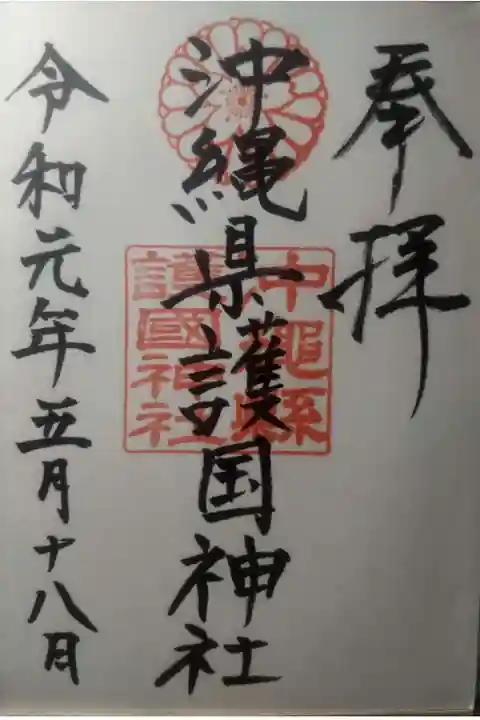 奉拝
沖縄県護国神社
沖縄縣
護國神社
令和元年五月十八日